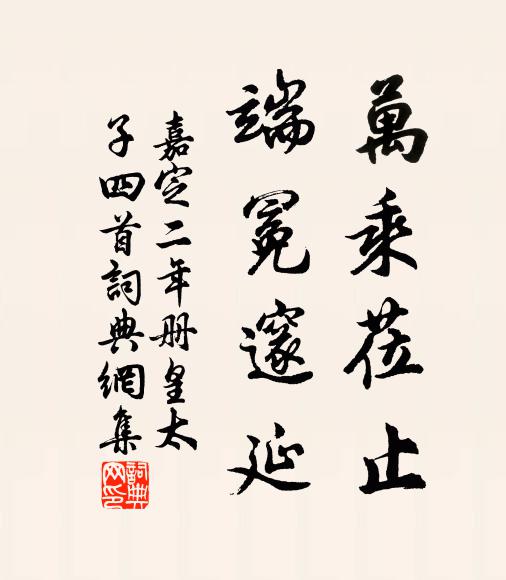 萬乘莅止
端冕邃延
嘉定二年册皇太
子四首詞典網集
詞典
网印